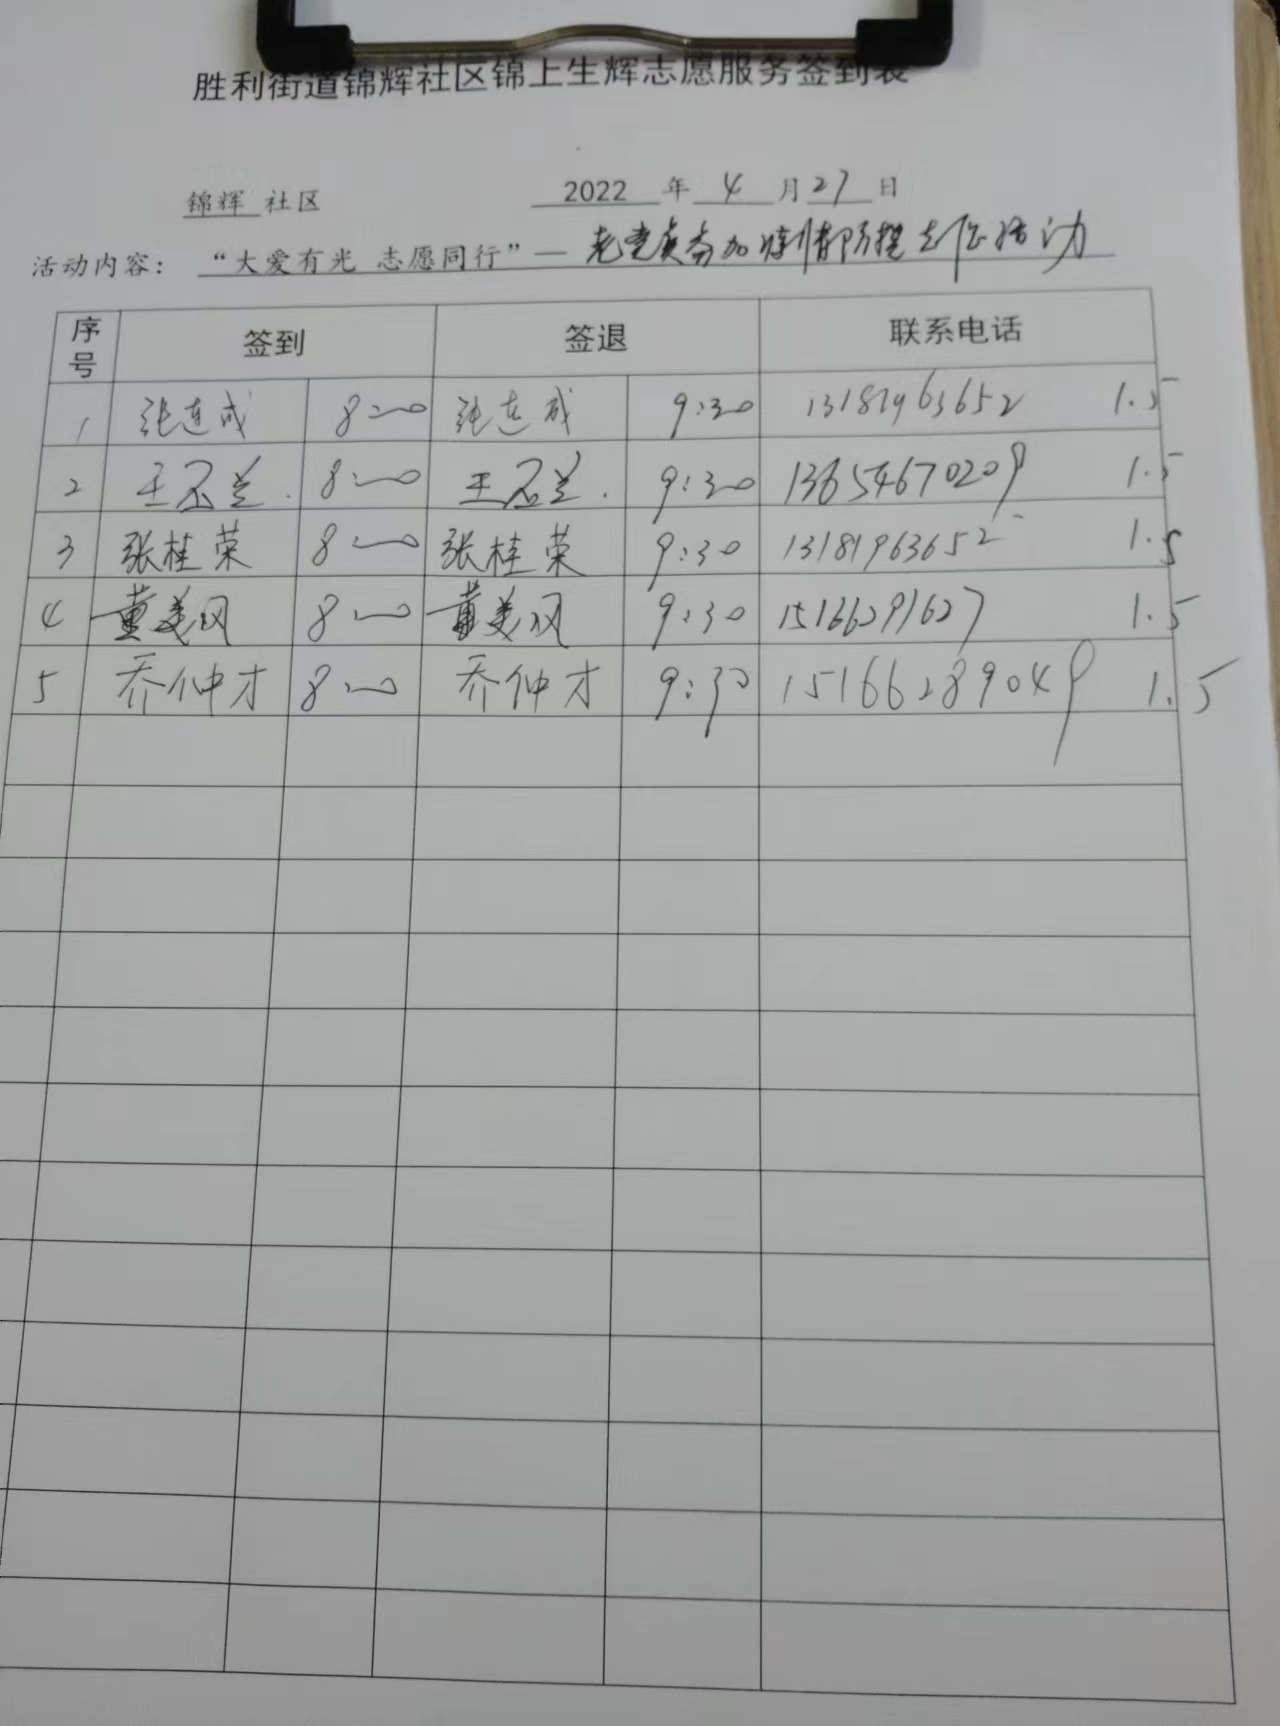 胜利街道锦辉社区锦上生辉志愿服务签到表
锦辉 社区 2022 年 4 月 27 日
活动内容： “大爱有光 志愿同行”— 老党员参加疫情防控志愿活动
序号 签到 签退 联系电话
1 张连成 8:00 张连成 9:30 13181963652 1.5
2 王 兰 8:00 王 兰 9:30 13654670209 1.5
3 张桂荣 8:00 张桂荣 9:30 13181963652 1.5
4 黄美风 8:00 黄美风 9:30 15166291627 1.5
5 乔仲才 8:00 乔仲才 9:30 15166289049 1.5